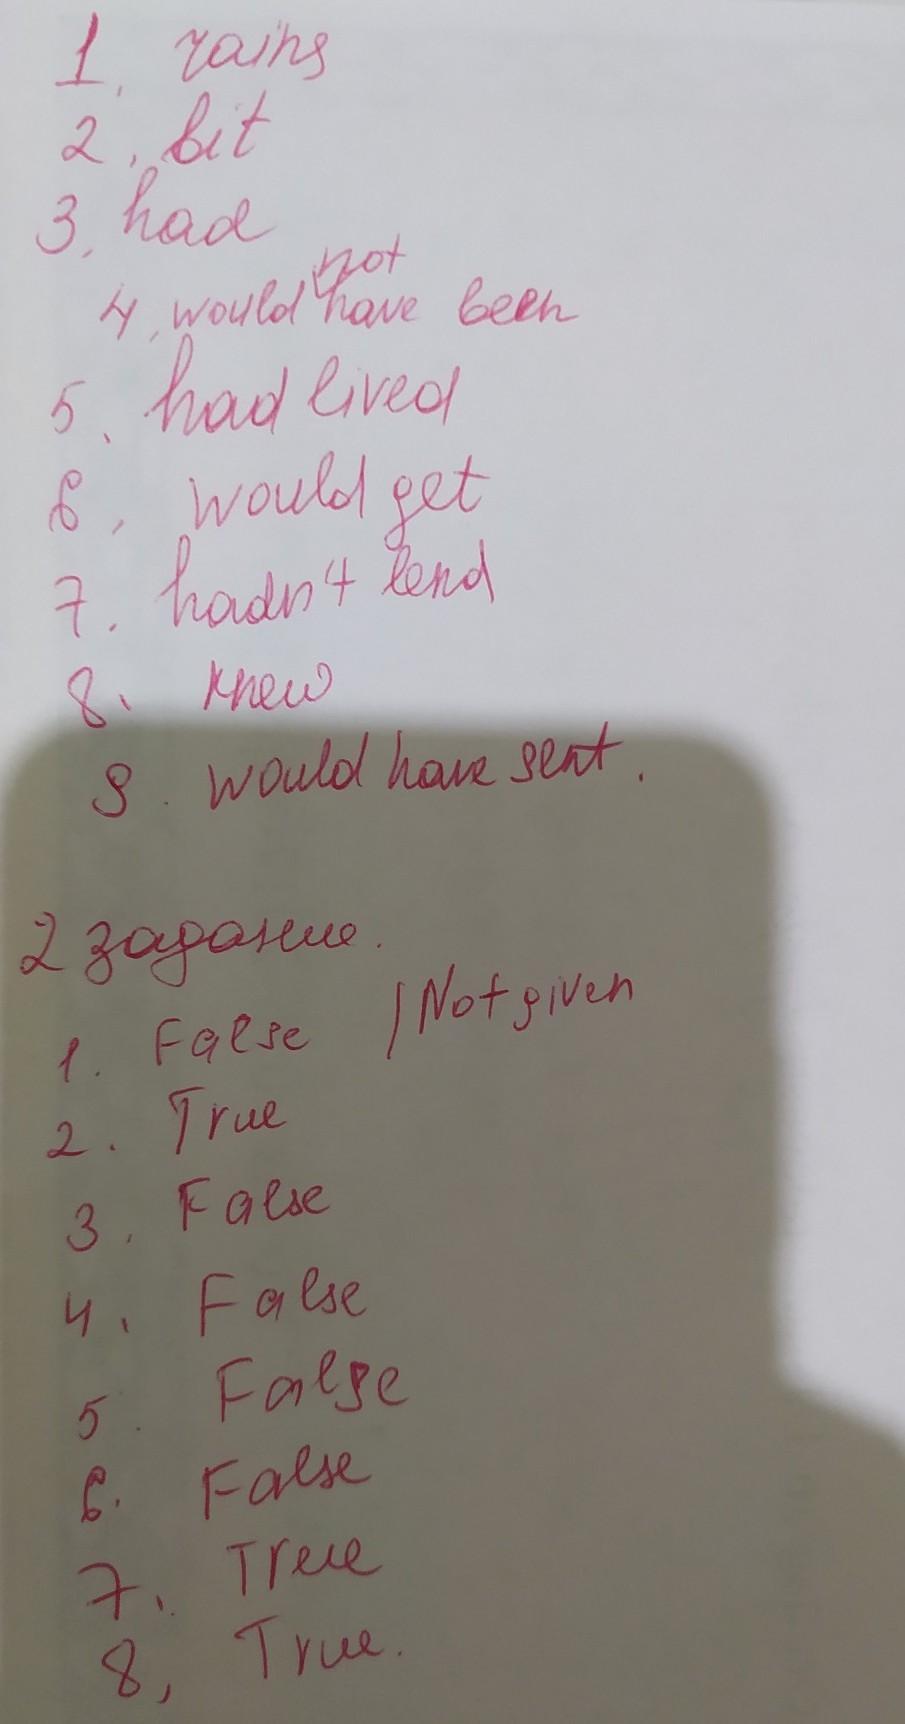 1. rains
2. bit
3. had
not
4. would have been
5. had lived
6. would get
7. hadn't lend
8. knew
9. would have sent.
2 задание.
1. False / Not given
2. True
3. False
4. False
5. False
6. False
7. True
8, True.